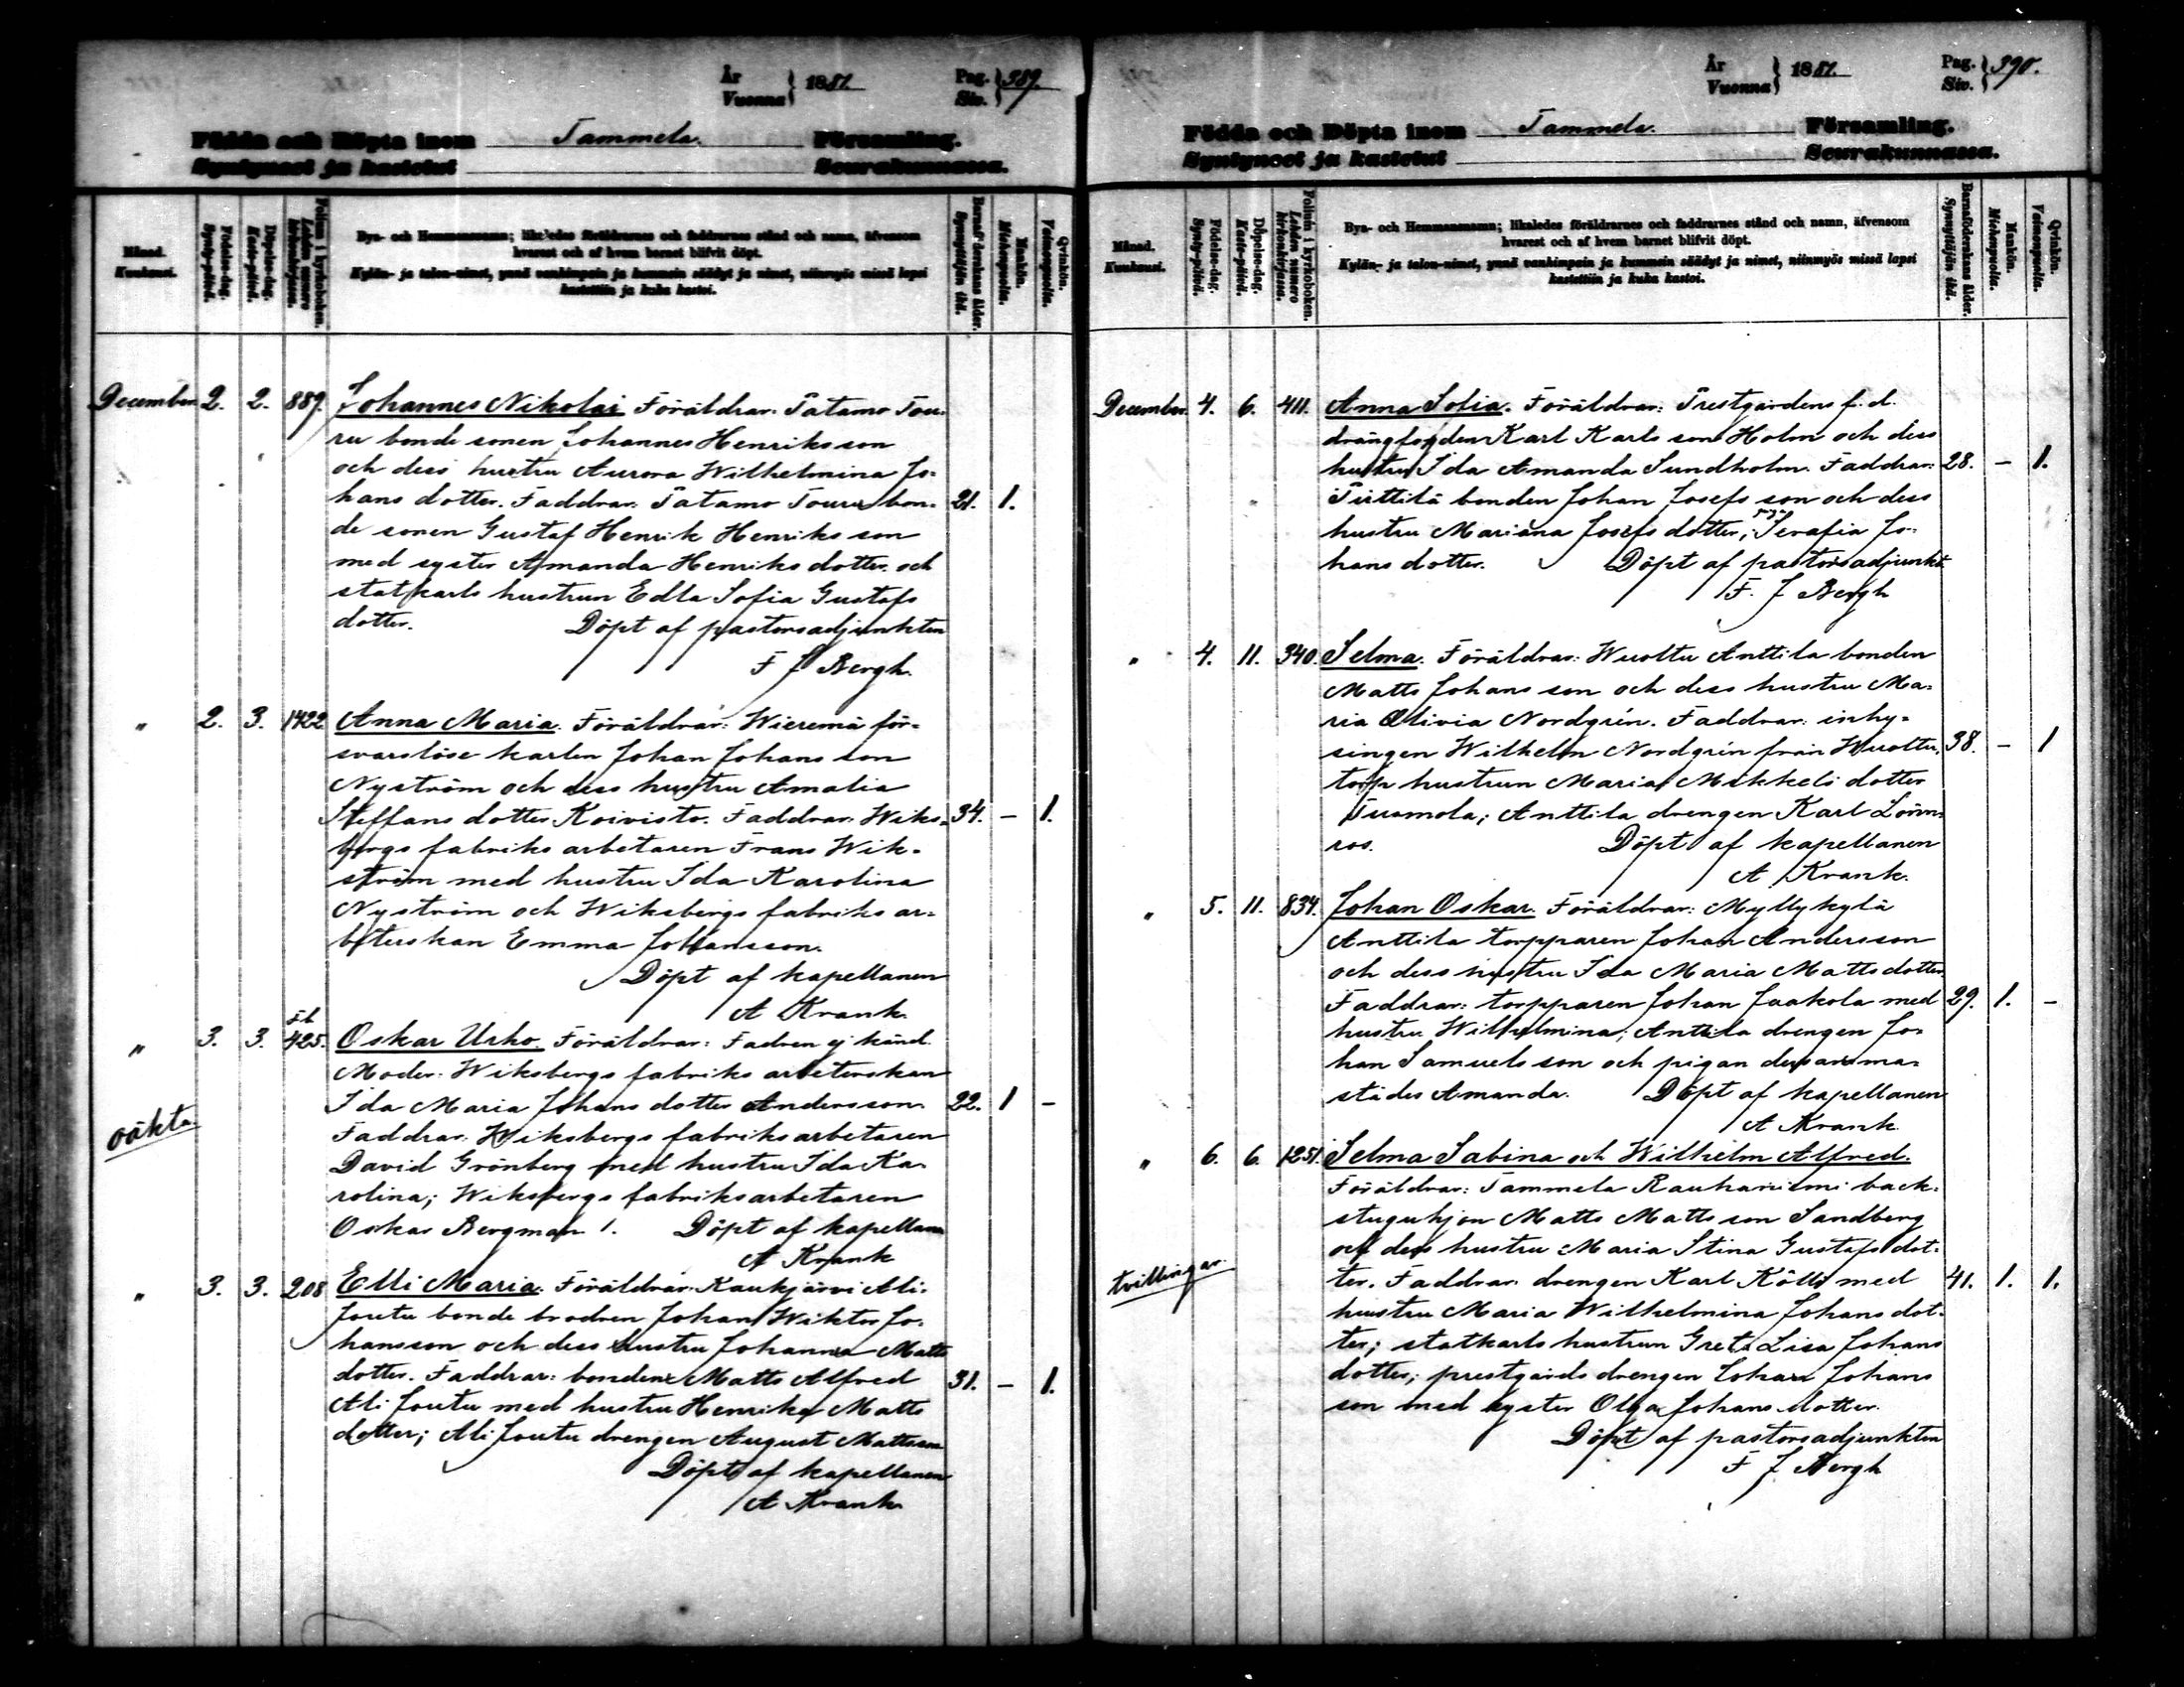 År
Vuonna } 1881. Pag.
Siv. } 389.
Födda och Döpta inom Tammela. Församling.
Syntyneet ja kastetut Seurakunnassa.
Månad.
Kuukausi.
Födelse-dag.
Synty-päivä.
Döpelse-dag.
Kaste-päivä.
Folium i kyrkoboken.
Lehden numero
kirkonkirjassa.
Bya- och Hemmansnamn; likaledes föräldrarnes och faddrarnes stånd och namn, äfvensom
hvarest och af hvem barnet blifvit döpt.
Kylän- ja talon-nimet, ynnä vanhimpain ja kummein säädyt ja nimet, niinmyös missä lapsi
kastettiin ja kuka kastoi.
Barnaföderskans ålder.
Synnyttäjän ikä.
Mankön.
Miehenpuolia.
Qvinkön.
Vaimonpuolia.
December. 2. 2. 889. Johannes Nikolai Föräldrar: Tatamo Tou-
ru bonde sonen Johannes Henriks son
och dess hustru Aurora Wilhelmina Jo-
hans dotter. Faddrar: Tatamo Touru bon- 21. 1.
de sonen Gustaf Henrik Henriks son
med syster Amanda Henriks dotter och
statkarls hustrun Edla Sofia Gustafs
dotter. Döpt af pastorsadjunkten
F J Bergh.
" 2. 3. 1422 Anna Maria. Föräldrar: Wieremä för-
svarslöse karlen Johan Johans son
Nyström och dess hustru Amalia
Steffans dotter Koivisto. Faddrar: Wiks- 34. – 1.
bergs fabriks arbetaren Frans Wik-
ström med hustru Ida Karolina
Nyström och Wiksbergs fabriks ar-
beterskan Emma Johansson.
Döpt af kapellanen
A Krank.
" 3. 3. 425. Oskar Urho. Föräldrar: Fadren ej känd.
Moder: Wiksbergs fabriks arbeterskan
oäkta Ida Maria Johans dotter Andersson. 22. 1 –
Faddrar: Wiksbergs fabriksarbetaren
David Grönberg med hustru Ida Ka-
rolina; Wiksbergs fabriksarbetaren
Oskar Bergman 1. Döpt af kapellanen
A Krank
" 3. 3. 208 Elli Maria. Föräldrar: Kaukjärvi Ali-
Joutu bonde brodren Johan Wiktor Jo-
hansson och dess hustru Johanna Matts
dotter. Faddrar: bonden Matts Alfred 31. – 1.
Ali Joutu med hustru Henrika Matts
dotter; Ali Joutu drengen August Mattsson
Döpt af kapellanen
A Krank
År
Vuonna } 1881. Pag.
Siv. } 390.
Födda och Döpta inom Tammela. Församling.
Syntyneet ja kastetut Seurakunnassa.
Månad.
Kuukausi.
Födelse-dag.
Synty-päivä.
Döpelse-dag.
Kaste-päivä.
Folium i kyrkoboken.
Lehden numero
kirkonkirjassa.
Bya- och Hemmansnamn; likaledes föräldrarnes och faddrarnes stånd och namn, äfvensom
hvarest och af hvem barnet blifvit döpt.
Kylän- ja talon-nimet, ynnä vanhimpain ja kummein säädyt ja nimet, niinmyös missä lapsi
kastettiin ja kuka kastoi.
Barnaföderskans ålder.
Synnyttäjän ikä.
Mankön.
Miehenpuolia.
Qvinkön.
Vaimonpuolia.
December. 4. 6. 411. Anna Sofia. Föräldrar: Prestgårdens f. d.
drängfogden Karl Karls son Holm och dess
hustru Ida Amanda Sundholm. Faddrar: 28. – 1.
bonden Johan Josefs son och dess
hustru Mariana Josefs dotter; Serafia Jo-
hans dotter. Döpt af pastorsadjunkt.
F. J Bergh
" 4. 11. 340. Selma. Föräldrar: Wuoltu Anttila bonden
Matts Johans son och dess hustru Ma-
ria Olivia Nordgrén. Faddrar: inhy-
singen Wilhelm Nordgrén från Wuoltu, 38. – 1
torp hustrun Maria Mikkels dotter
Tuomola; Anttila drengen Karl Lönn-
ros. Döpt af kapellanen
A Krank.
" 5. 11. 834. Johan Oskar. Föräldrar: Myllykylä
Anttila torpparen Johan Andersson
och dess hustru Ida Maria Matts dotter.
Faddrar: torpparen Johan Jaakola med 29. 1. –
hustru Wilhelmina; Anttila drengen Jo-
han Samuels son och pigan dersamma-
städes Amanda. Döpt af kapellanen
A Krank.
" 6. 6. 1251. Selma Sabina och Wilhelm Alfred.
Föräldrar: Tammela Rauhaniemi back-
stuguhjon Matts Matts son Sandberg
och dess hustru Maria Stina Gustafs dot-
tvillingar. ter. Faddrar: drengen Karl Kölli med 41. 1. 1.
hustru Maria Wilhelmina Johans dot-
ter; statkarls hustrun Greta Lisa Johans
dotter; prestgårds drengen Johan Johans
son med syster Olga Johans dotter.
Döpt af pastorsadjunkten
F J Bergh